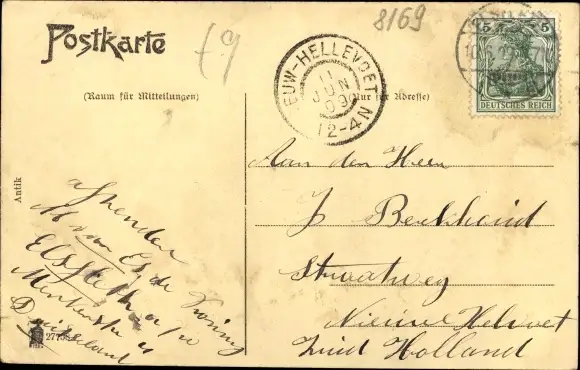 Postkarte
f 9
8169
5 5
DEUTSCHES REICH
EUW-HELLEVOET
11
JUN
09
12-4N
(Raum für Mitteilungen)
(Nur für Adresse)
Antik
Aan den Heer
J. Berkhoud
Straatweg
Nieuwe Helvoet
Zuid Holland
afzender
Elsfleth a/
Duitsland